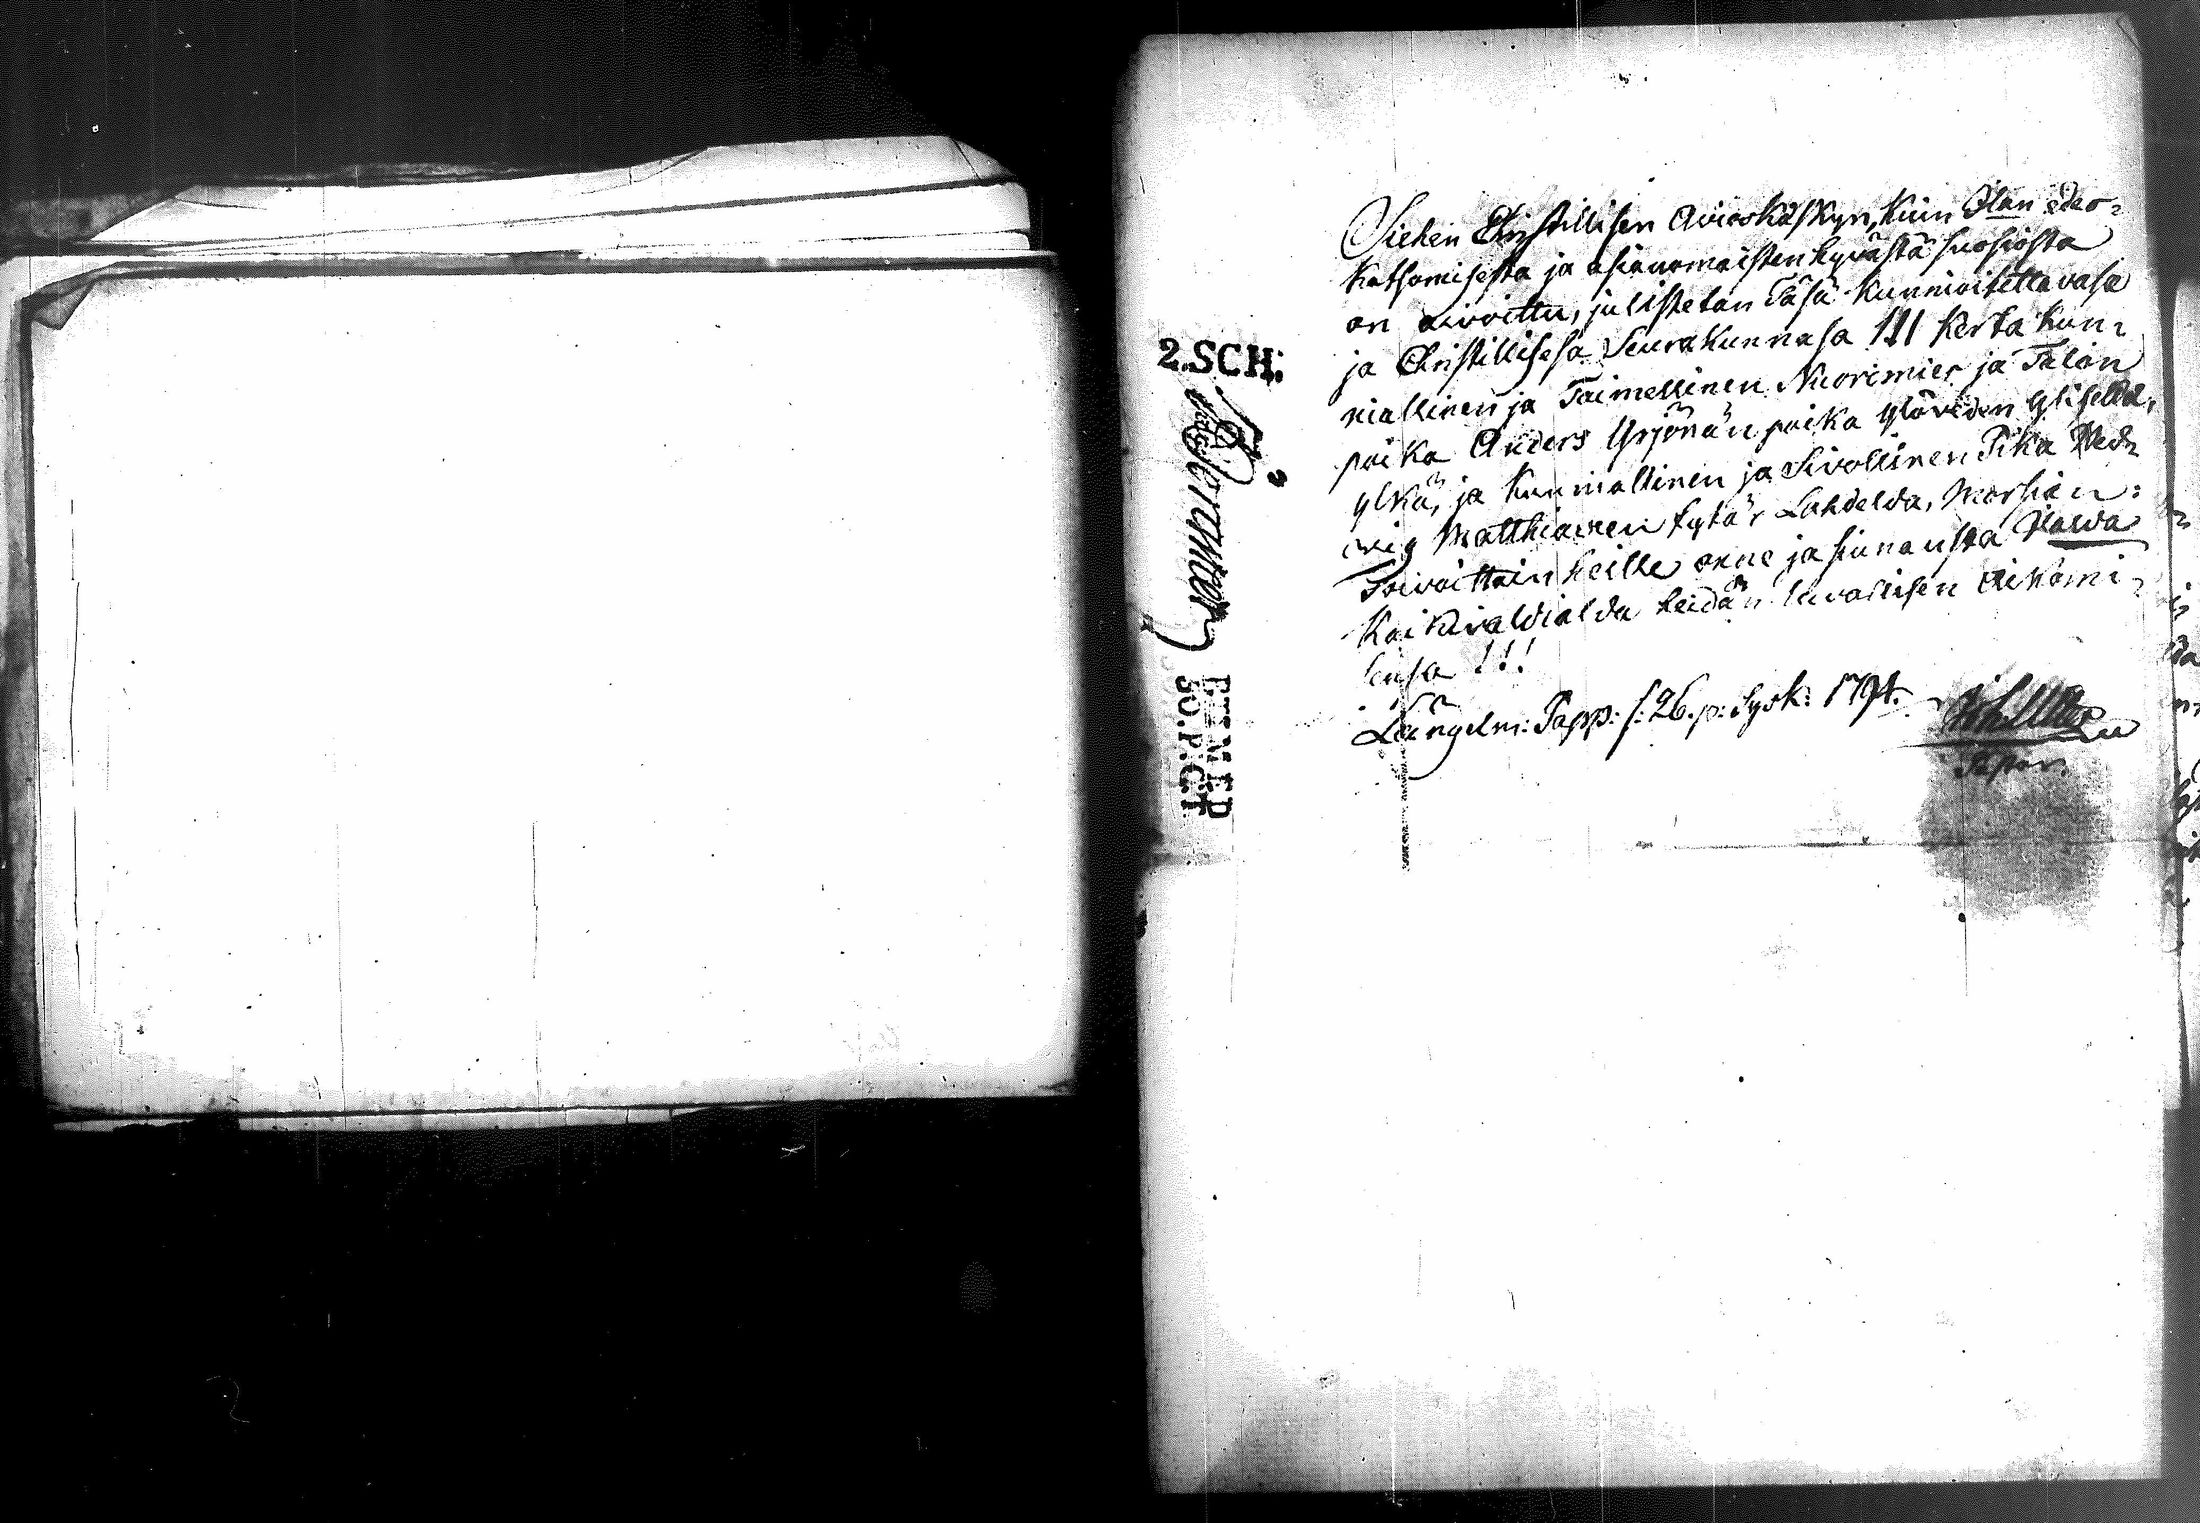 2.SCH:
BEUNED
50.P.Ct
Siehen Christillisen Aviioskäskyn, kuin Ilan edes-
katsomisesta ja asianomaisten hyvästä suosiosta
on aivoittu, julistetan Täsä kunnioitettavasa
ja Christillisesä Seurakunnasa III kerta kun-
niallinen ja Toimellinen Nuorimies ja Talon
poika Anders Yrjönän poika Ylöveden Yliseldä,
ylkä, ja kunniallinen ja Sivollinen Pika Hed-
wig Matthiaxen tytär Lahdelda, Morsian:
Toivoittain heille onne ja siunausta Ilawa
Kaikivaldialda heidän luvallisen Aikomi-
sensa !!!
Längelm: Papp: s: 26. p: Syok: 1794.
Pastor.